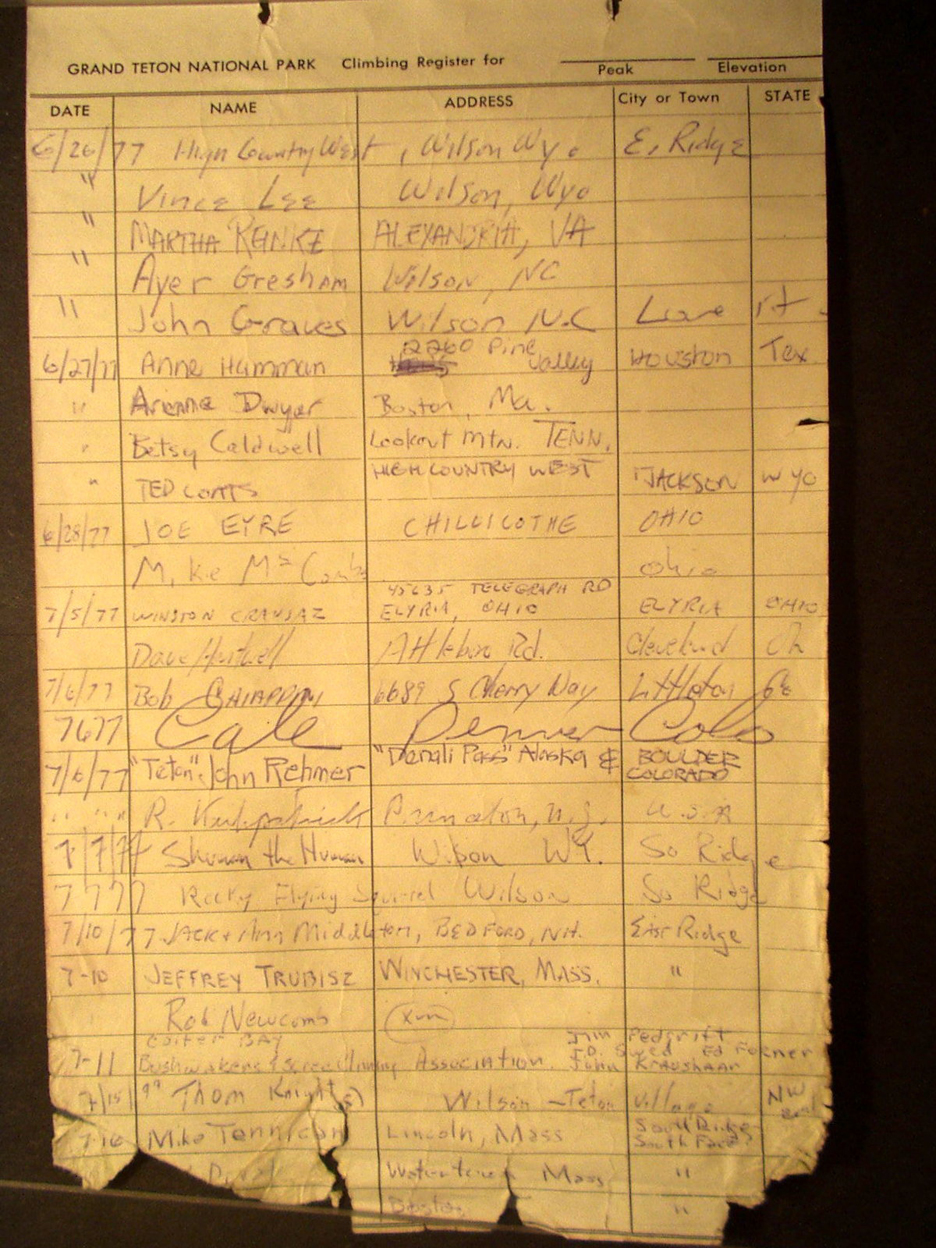 GRAND TETON NATIONAL PARK Climbing Register for
Peak Elevation
DATE NAME ADDRESS City or Town STATE
6/26/77 High Country West, Wilson Wyo E. Ridge
" Vince Lee Wilson, Wyo
" MARTHA REINKE ALEXANDRIA, VA
" Ayer Gresham Wilson, NC
" John Graves Wilson N.C Love it
6/27/77 Anne Hamman 2260 Pine Valley Houston Tex
" Arienne Dwyer Boston, Ma.
" Betsy Caldwell Lookout Mtn. TENN.
" TED COATS HIGH COUNTRY WEST JACKSON WYO
6/28/77 JOE EYRE CHILLICOTHE OHIO
Mike McCombs Ohio
7/5/77 WINSTON 45635 TELEGRAPH RD
ELYRIA, OHIO ELYRIA OHIO
Dave Hartwell Attleboro Rd. Cleveland Oh
7/6/77 Bob 6689 S Cherry Way Littleton
7677 Cale Denver Colo
7/6/77 "Teton" John Rehmer "Denali Pass" Alaska & BOULDER
COLORADO
" " " R. Kirkpatrick Princeton, N.J. U.S.A
7/7/77 the Human Wilson WY. So Ridge
7777 Rocky Flying Squirrel Wilson So Ridge
7/10/77 JACK + Ann Middleton, BEDFORD, NH. EAST Ridge
7-10 JEFFREY TRUBISZ WINCHESTER, MASS. "
Rob Newcomb
COLTER BAY Jim
7-11 Bushwakers & Association. John Kraushaar
7/15 Thom Knight(s) Wilson - Teton Village NW
7-16 Mike Lincoln, Mass South Ridge
South Face
Watertown Mass "
Boston "